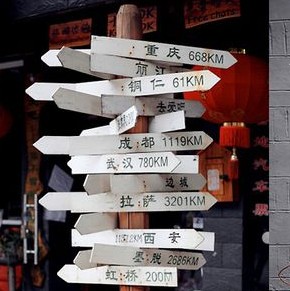 重庆 668KM
丽江
铜仁 61KM
成都 1119KM
武汉 780KM
边城
拉·萨 3201KM
西安
墨·脱 2686KM
虹·桥 200M